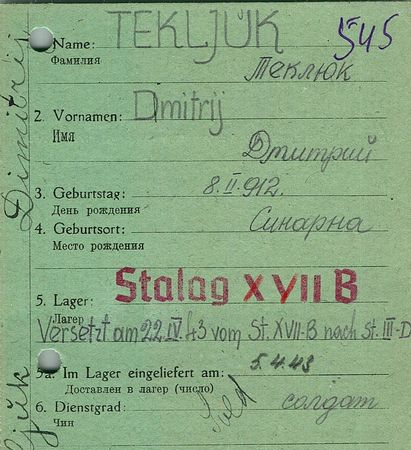 Name: TEKLJUK 545
Фамилия Теклюк
2. Vornamen: Dmitrij
Имя Дмитрий
3. Geburtstag: 8.II.912.
День рождения
4. Geburtsort: Синарна
Место рождения
5. Lager: Stalag XVII B
Лагер
Versetzt am 22.IV.43 vom St. XVII-B nach St. III-D
5a. Im Lager eingeliefert am: 5.4.43
Доставлен в лагер (число)
6. Dienstgrad: Sold солдат
Чин
Dimitrij